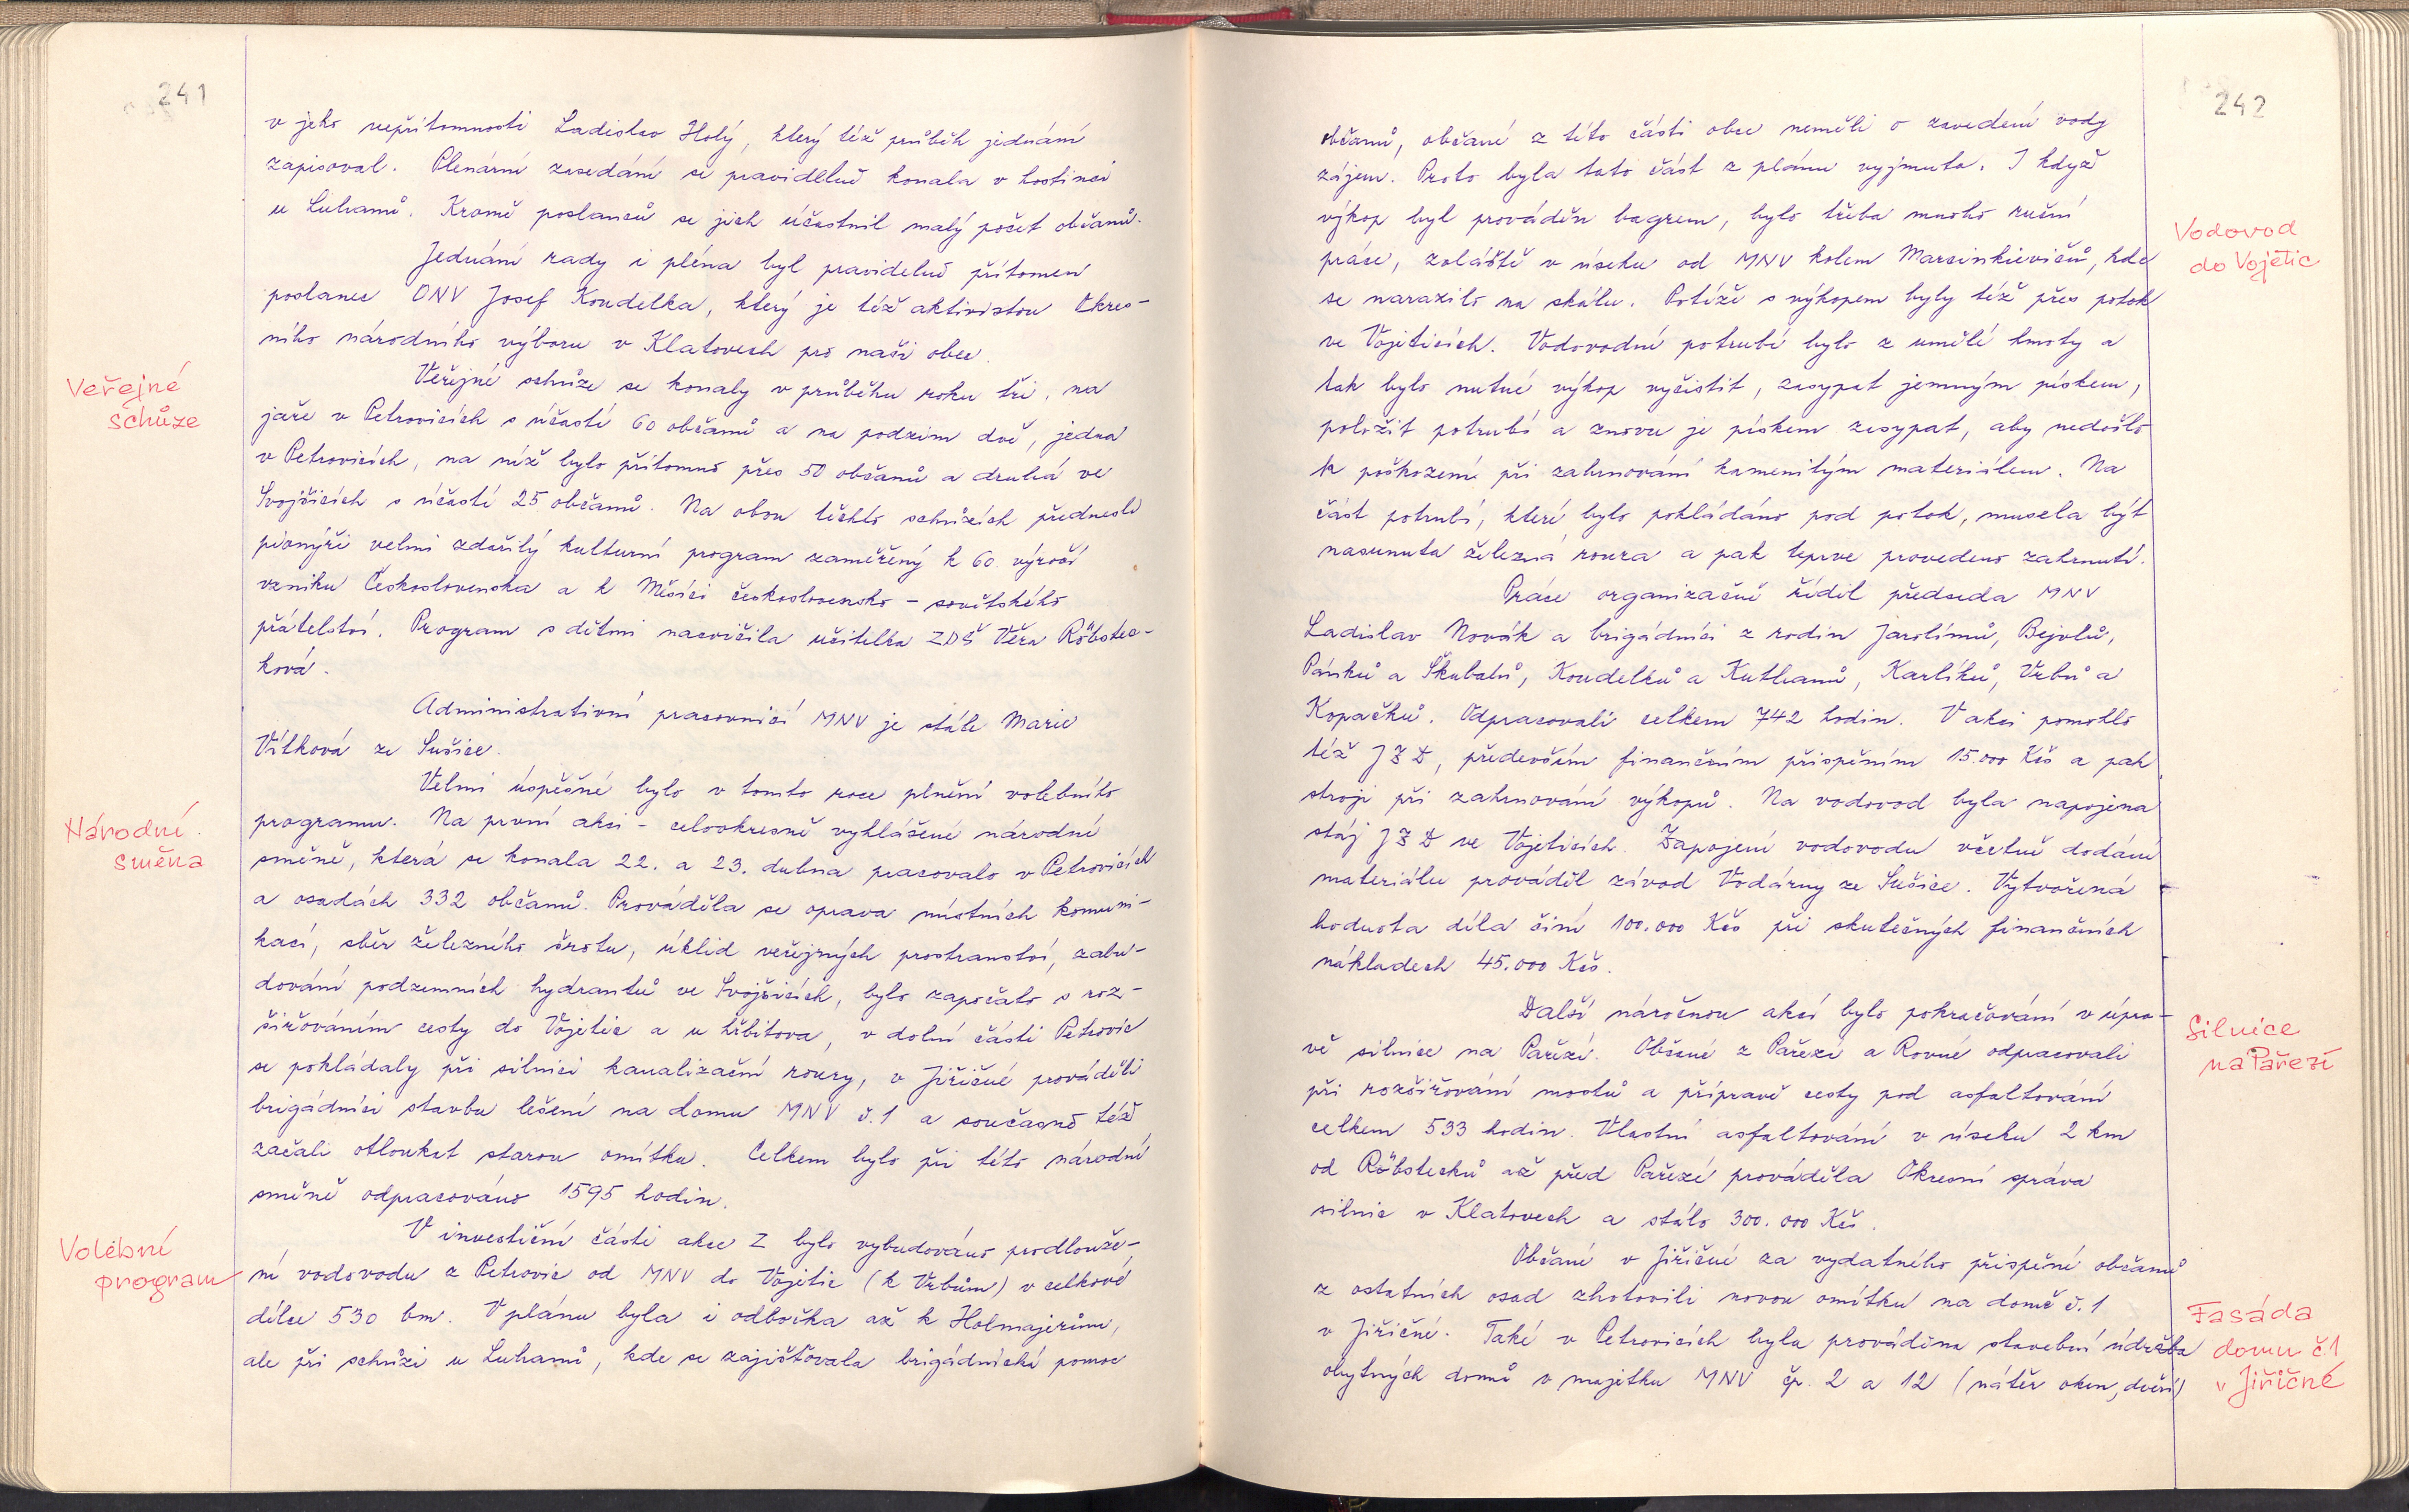 241
v jeho nepřítomnosti Ladislav Holý, který též průběh jednání
zapisoval. Plenární zasedání se pravidelně konala v hostinci
u Luhanů. Kromě poslanců se jich účastnil malý počet občanů.
Jednání rady i pléna byl pravidelně přítomen
poslanec ONV Josef Koudelka, který je též aktivistou Okres-
ního národního výboru v Klatovech pro naši obec.
Veřejné
schůze
Veřejné schůze se konaly v průběhu roku tři, na
jaře v Petrovicích s účastí 60 občanů a na podzim dvě, jedna
v Petrovicích, na níž bylo přítomno přes 50 občanů a druhá ve
Svojšicích s účastí 25 občanů. Na obou těchto schůzích přednesli
pionýři velmi zdařilý kulturní program zaměřený k 60. výročí
vzniku Československa a k Měsíci československo - sovětského
přátelství. Program s dětmi nacvičila učitelka ZDŠ Věra Röbstec-
ková.
Administrativní pracovnicí MNV je stále Marie
Vítková ze Sušice.
Velmi úspěšné bylo v tomto roce plnění volebního
Národní
směna
programu. Na první akci - celookresně vyhlášené národní
směně, která se konala 22. a 23. dubna pracovalo v Petrovicích
a osadách 332 občanů. Prováděla se oprava místních komuni-
kací, sběr železného šrotu, úklid veřejných prostranství, zabu-
dování podzemních hydrantů ve Svojšicích, bylo započato s roz-
šiřováním cesty do Vojetic a u hřbitova, v dolní části Petrovic
se pokládaly při silnici kanalizační roury, v Jiřičné prováděli
brigádníci stavbu lešení na domu MNV č. 1 a současně též
začali otloukat starou omítku. Celkem bylo při této národní
směně odpracováno 1595 hodin.
Volební
program
V investiční části akce Z bylo vybudováno prodlouže-
ní vodovodu z Petrovic od MNV do Vojetic (k Vrbům) v celkové
délce 530 bm. V plánu byla i odbočka až k Holmajerům,
ale při schůzi u Luhanů, kde se zajišťovala brigádnická pomoc
242
občanů, občané z této části obce neměli o zavedení vody
zájem. Proto byla tato část z plánu vyjmuta. I když
výkop byl prováděn bagrem, bylo třeba mnoho ruční
Vodovod
do Vojetic
práce, zvláště v úseku od MNV kolem Marcinkievičů, kde
se narazilo na skálu. Potíže s výkopem byly též přes potok
ve Vojeticích. Vodovodní potrubí bylo z umělé hmoty a
tak bylo nutné výkop vyčistit, zasypat jemným pískem,
položit potrubí a znovu je pískem zasypat, aby nedošlo
k poškození při zahrnování kamenitým materiálem. Na
část potrubí, které bylo pokládáno pod potok, musela být
nasunuta železná roura a pak teprve provedeno zahrnutí.
Práce organizačně řídil předseda MNV
Ladislav Novák a brigádníci z rodin Jarolímů, Bejvlů,
Pánků a Škubalů, Koudelků a Kuthanů, Karlíků, Vrbů a
Kopačků. Odpracovali celkem 742 hodin. V akci pomohlo
též JZD, především finančním přispěním 15.000 Kčs a pak
stroji při zahrnování výkopů. Na vodovod byla napojena
stáj JZD ve Vojeticích. Zapojení vodovodu včetně dodání
materiálu prováděl závod Vodárny ze Sušice. Vytvořená
hodnota díla činí 100.000 Kčs při skutečných finančních
nákladech 45.000 Kčs.
Další náročnou akcí bylo pokračování v úpra-
Silnice
na Pařezí
vě silnice na Pařezí. Občané z Pařezí a Rovné odpracovali
při rozšiřování mostů a přípravě cesty pod asfaltování
celkem 533 hodin. Vlastní asfaltování v úseku 2 km
od Röbstecků až před Pařezí prováděla Okresní správa
silnic v Klatovech a stálo 300.000 Kčs.
Občané v Jiřičné za vydatného přispění občanů
z ostatních osad zhotovili novou omítku na domě č. 1
Fasáda
domu č.1
v Jiřičné
v Jiřičné. Také v Petrovicích byla prováděna stavební údržba
obytných domů v majetku MNV čp. 2 a 12 (nátěr oken, dveří)